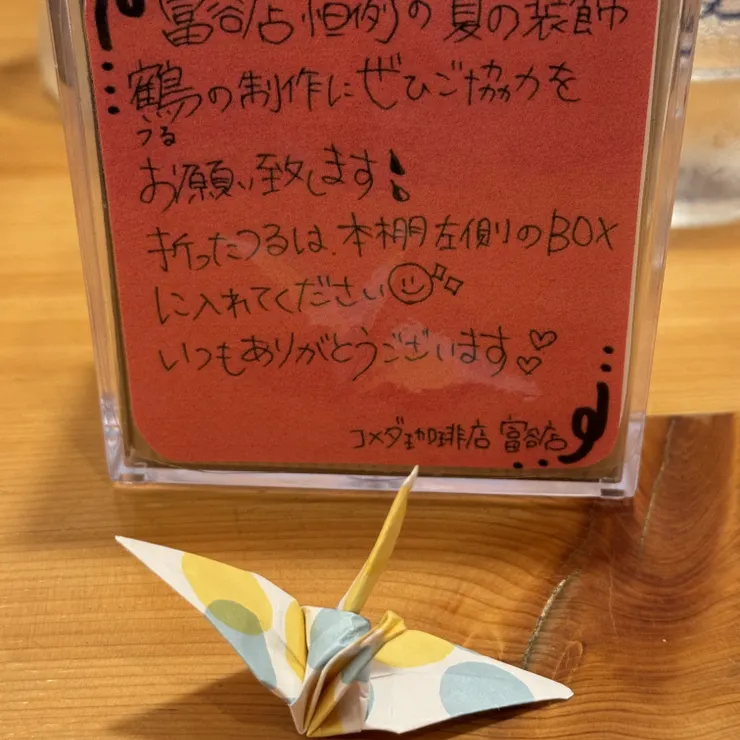 富谷店恒例の夏の装飾
鶴の制作にぜひご協力を
つる
お願い致します!
折ったつるは、本棚左側のBOX
に入れてください
いつもありがとうございます♡♡
コメダ珈琲店 富谷店